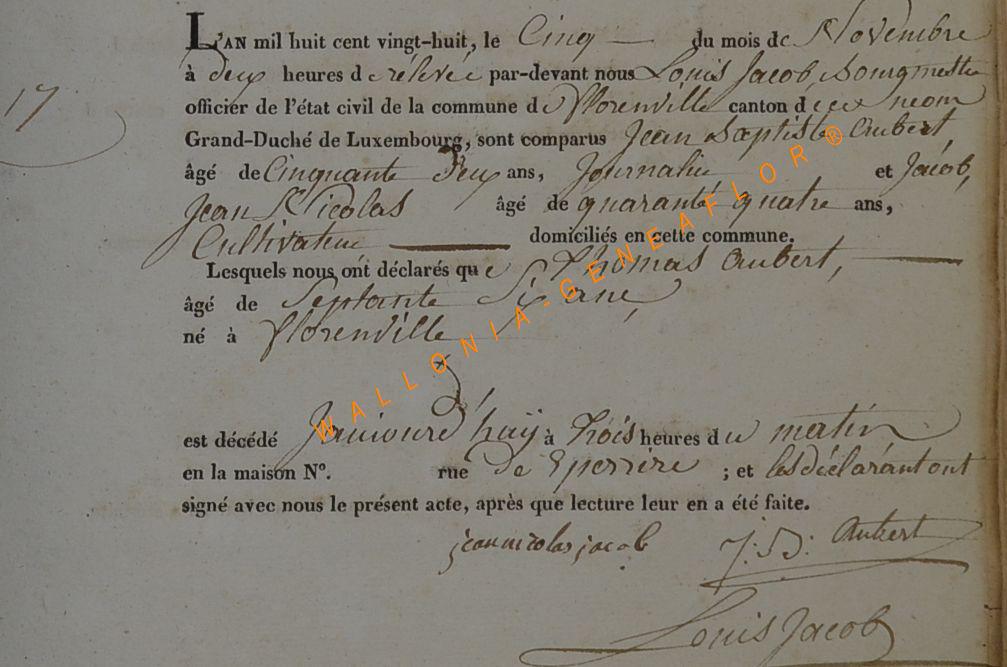 17
L'AN mil huit cent vingt-huit, le Cinq du mois de Novembre
à deux heures de rélévée par-devant nous Louis Jacob, bourgmestre
officier de l'état civil de la commune de florenville canton d nom
Grand-Duché de Luxembourg, sont comparus Jean Baptiste aubert,
âgé de Cinquante deux ans, Journalier et Jacob,
Jean Nicolas âgé de quarante quatre ans,
Cultivateur domiciliés en cette commune.
Lesquels nous ont déclarés que Thomas aubert,
âgé de Septante Six ans,
né à florenville
est décédé Jaujourd'huy à trois heures du matin
en la maison N°. rue de ; et les déclarant ont
signé avec nous le présent acte, après que lecture leur en a été faite.
jean nicolas jacob J: B: Aubert
Louis Jacob
WALLONIA-GENEAFLOR®